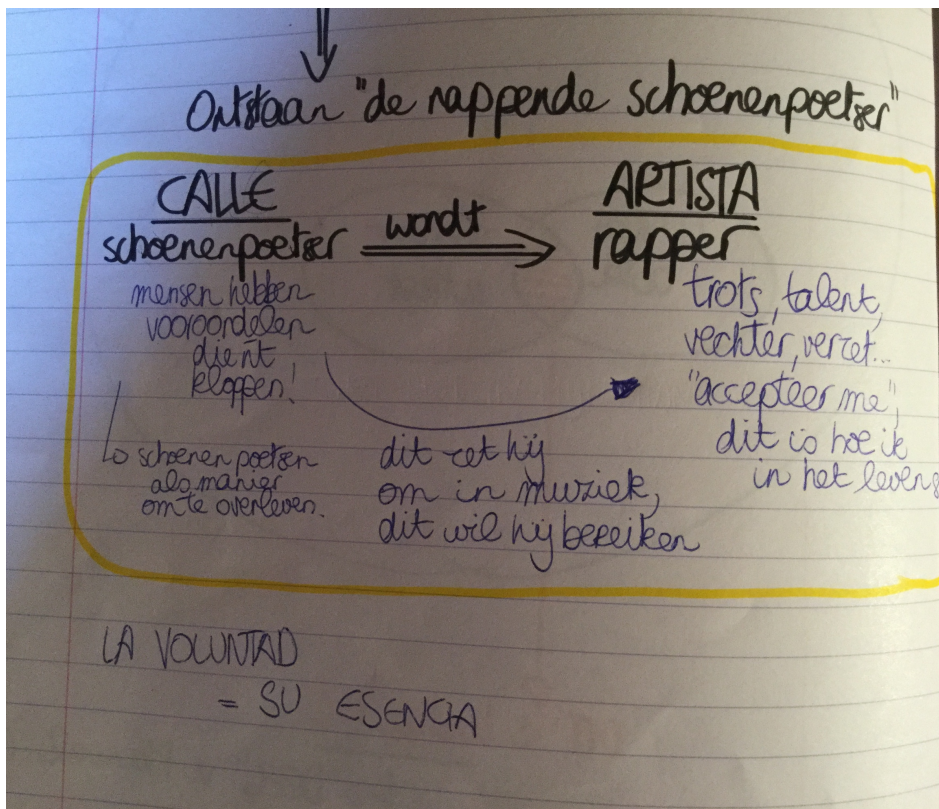 Ontstaan "de rappende schoenenpoetser"
CALLE
schoenenpoetser
wordt
ARTISTA
rapper
mensen hebben
vooroordelen
die niet
kloppen!
schoenen poetsen
als manier
om te overleven.
dit zet hij
om in muziek,
dit wil hij bereiken
trots, talent,
vechter, verzet...
"accepteer me",
dit is hoe ik
in het leven
LA VOLUNTAD
= SU ESENCIA